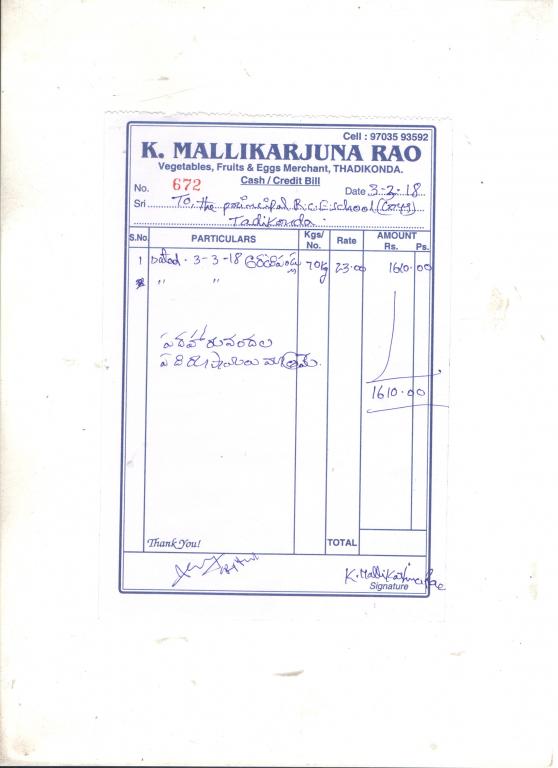 Cell : 97035 93592
K. MALLIKARJUNA RAO
Vegetables, Fruits & Eggs Merchant, THADIKONDA.
Cash / Credit Bill
No. 672 Date 3-3-18
Sri To, the principal R.C.E. school
Tadikonda
S.No. PARTICULARS Kgs/ No. Rate AMOUNT Rs. Ps.
1 Dated. 3-3-18 70kg 23.00 1610.00
" "
పదహారువందల
పది రూపాయలు
1610.00
Thank You! TOTAL
K. Mallikarjuna Rao
Signature